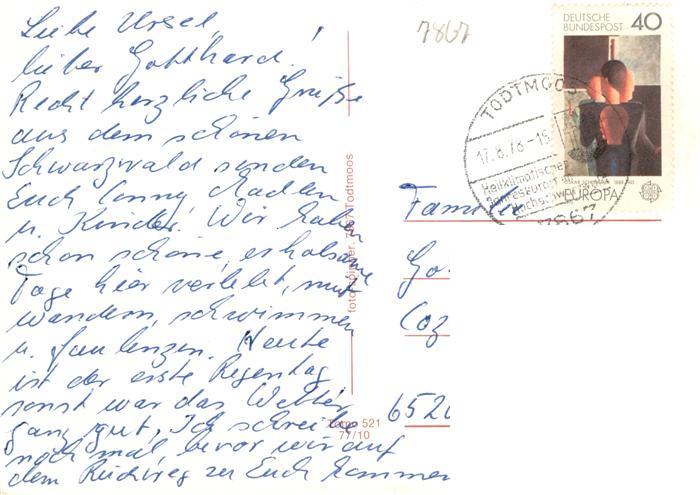 Liebe Ursel,
lieber Gotthard!
Recht herzliche Grüße
aus dem schönen
Schwarzwald senden
Euch Conny,
u. Kinder. Wir haben
schon schöne, erholsame
Tage hier verlebt, mit
wandern, schwimmen
u. faulenzen. Heute
ist der erste Regentag
sonst war das Wetter
ganz gut, Ich schreibe
noch mal, bevor wir auf
dem Rückweg zu Euch kommen
7867
DEUTSCHE
BUNDESPOST 40
EUROPA
TODTMOOS
17.8.78-15
Heilklimatischer
Jahreskurort
Hochschwarzwald
7867
7867 Todtmoos
521
77/10
Familie
Go
Coz
6520